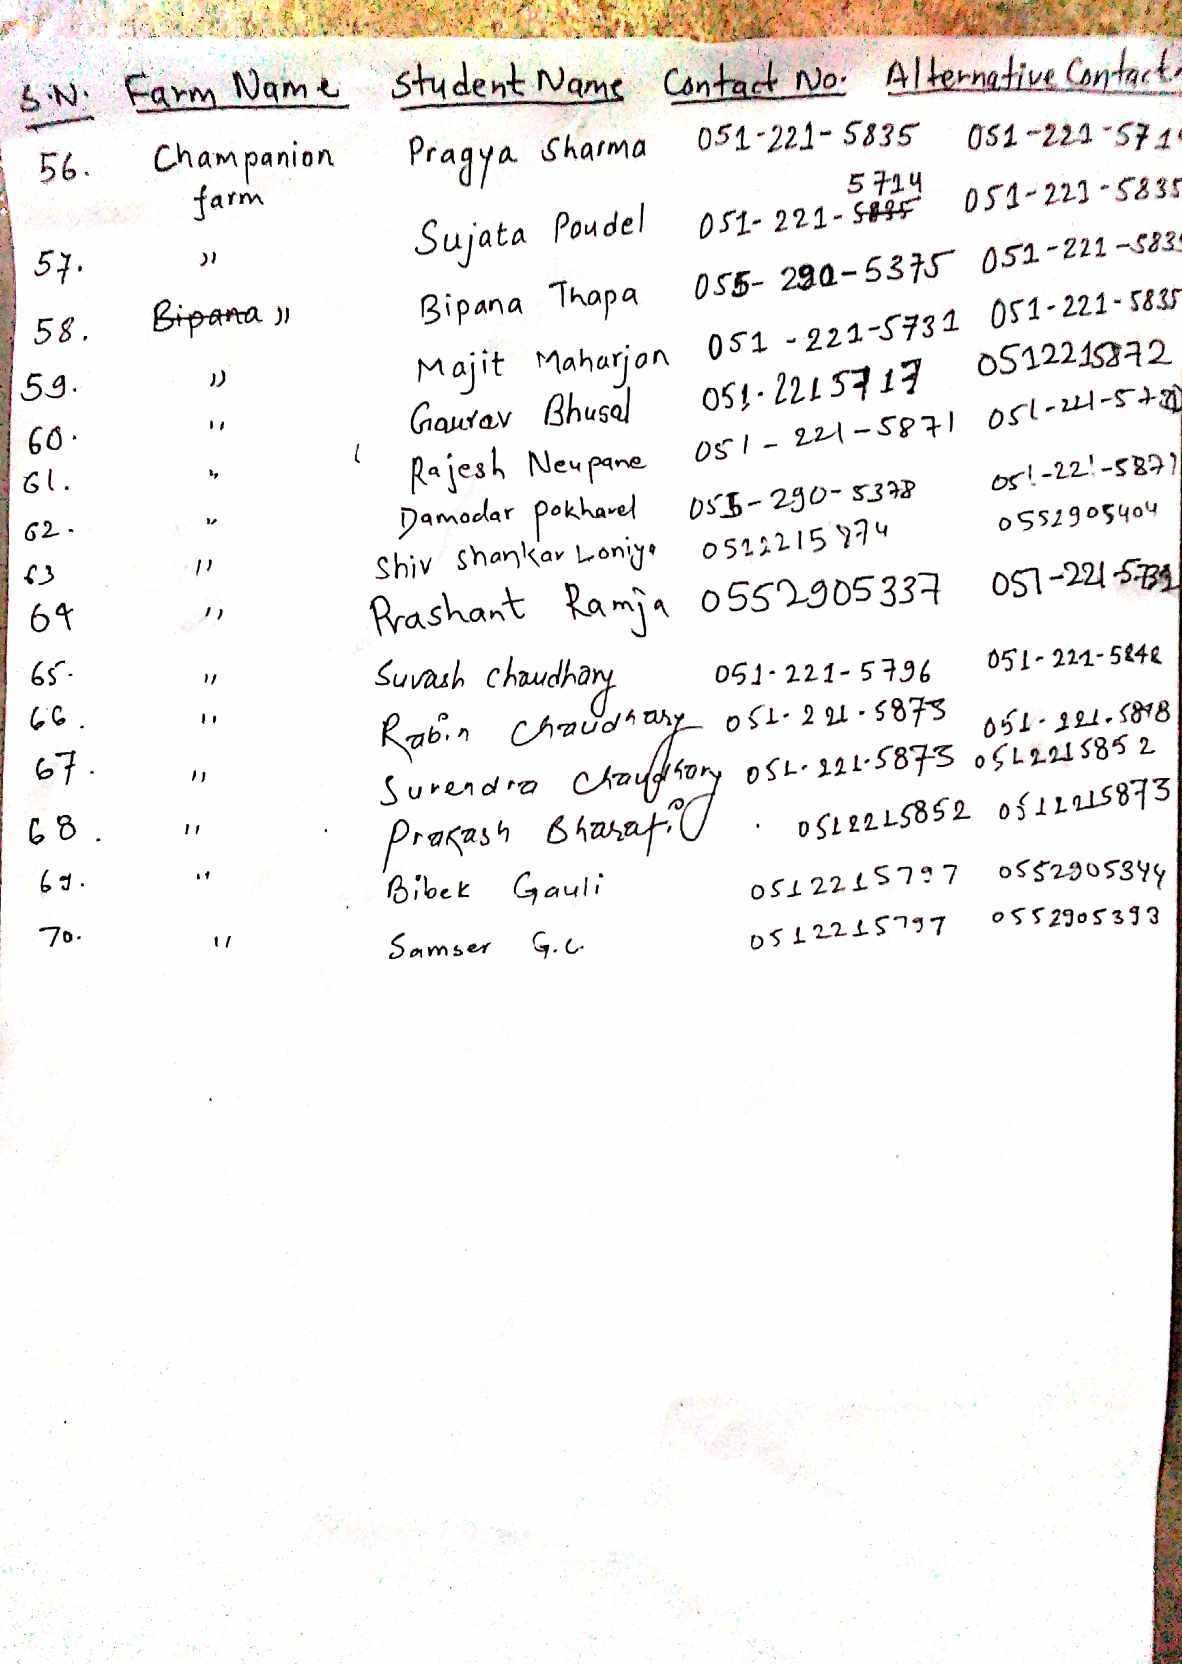 S.N. Farm Name Student Name Contact No. Alternative Contact
56. Champanion farm Pragya Sharma 051-221-5835 051-221-571
57. " Sujata Poudel 051-221-5714 051-221-5835
58. " Bipana Thapa 055-290-5375 051-221-5835
59. " Majit Maharjan 051-221-5731 051-221-5835
60. " Gaurav Bhusal 051-2215717 0512215872
61. " Rajesh Neupane 051-221-5871
62. " Damodar Pokharel 055-290-5378 051-221-5871
63 " Shiv Shankar Loniya 0512215874 0552905404
64 " Prashant Ramja 0552905337
65. " Suvash Chaudhary 051-221-5796 051-221-5848
66. " Rabin Chaudhary 051-221-5873
67. " Surendra Chaudhary 051-221-5873 0512215852
68. " Prakash Bharati 0512215852 0512215873
69. " Bibek Gauli 0512215797 0552905344
70. " Samser G.C. 0512215797 0552905393